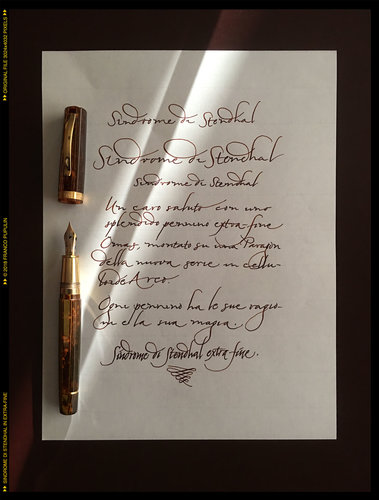 Sindrome di Stendhal
Sindrome di Stendhal
Sindrome di Stendhal
Un caro saluto con uno
splendido pennino extra-fine
Omas, montato su una Paragon
della nuova serie in cellu-
loide Arco.
Ogni pennino ha le sue ragio-
ni e la sua magia.
Sindrome di Stendhal extra-fine.
ORIGINAL FILE 3024x4032 PIXELS
© 2019 FRANCO PUPULIN
SINDROME DI STENDHAL IN EXTRA-FINE